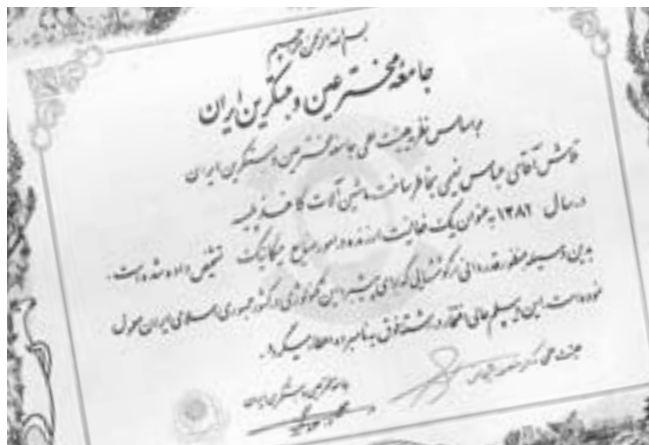 بسم الله الرحمن الرحیم
جامعه مخترعین و مبتکرین ایران
بر اساس نظریه هیئت علمی جامعه مخترعین و مبتکرین ایران
تلاش آقای عباس نعیمی بخاطر ساخت ماشین آلات کاغذ
در سال ۱۳۸۲ به عنوان یک فعالیت ارزنده در امور صنایع مکانیک تشخیص داده شده است .
بدین وسیله بمنظور قدردانی از کوششهایی که برای پیشبرد این تکنولوژی در کشور جمهوری اسلامی ایران مبذول
نموده است این دیپلم عالی افتخار در رشته فوق به نامبرده اعطاء میگردد .
هیئت علمی
جامعه مخترعین و مبتکرین ایران